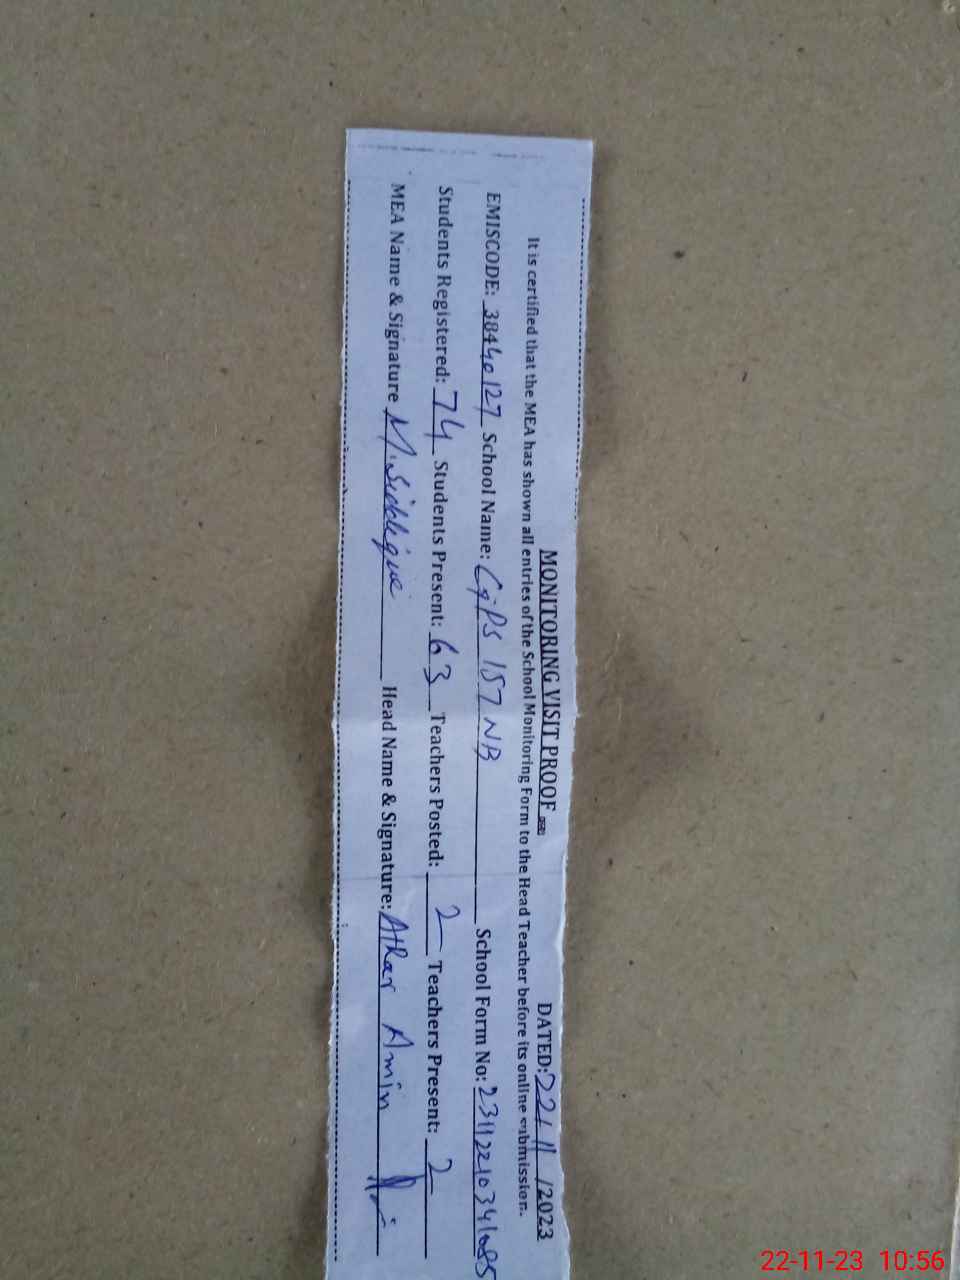 MONITORING VISIT PROOF DATED: 22/11/2023
It is certified that the MEA has shown all entries of the School Monitoring Form to the Head Teacher before its online submission.
EMISCODE: 38440127 School Name: GPS 157 NB School Form No:
Students Registered: 74 Students Present: 63 Teachers Posted: 2 Teachers Present: 2
MEA Name & Signature M. Siddique Head Name & Signature: Athar Amin
22-11-23 10:56